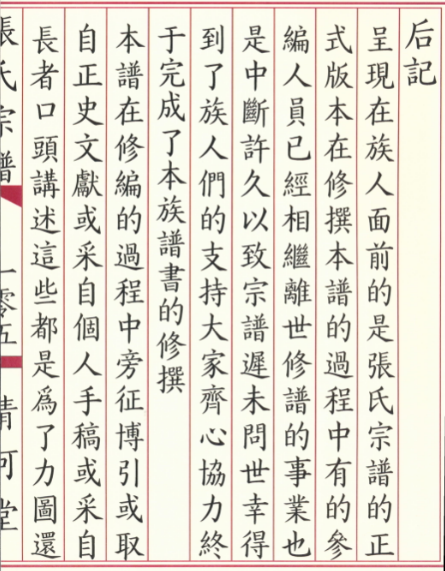 后記
呈現在族人面前的是張氏宗譜的正
式版本在修撰本譜的過程中有的參
編人員已經相繼離世修譜的事業也
是中斷許久以致宗譜遲未問世幸得
到了族人們的支持大家齊心協力終
于完成了本族譜書的修撰
本譜在修編的過程中旁征博引或取
自正史文獻或采自個人手稿或采自
長者口頭講述這些都是爲了力圖還
張氏宗譜 一零五 清河堂